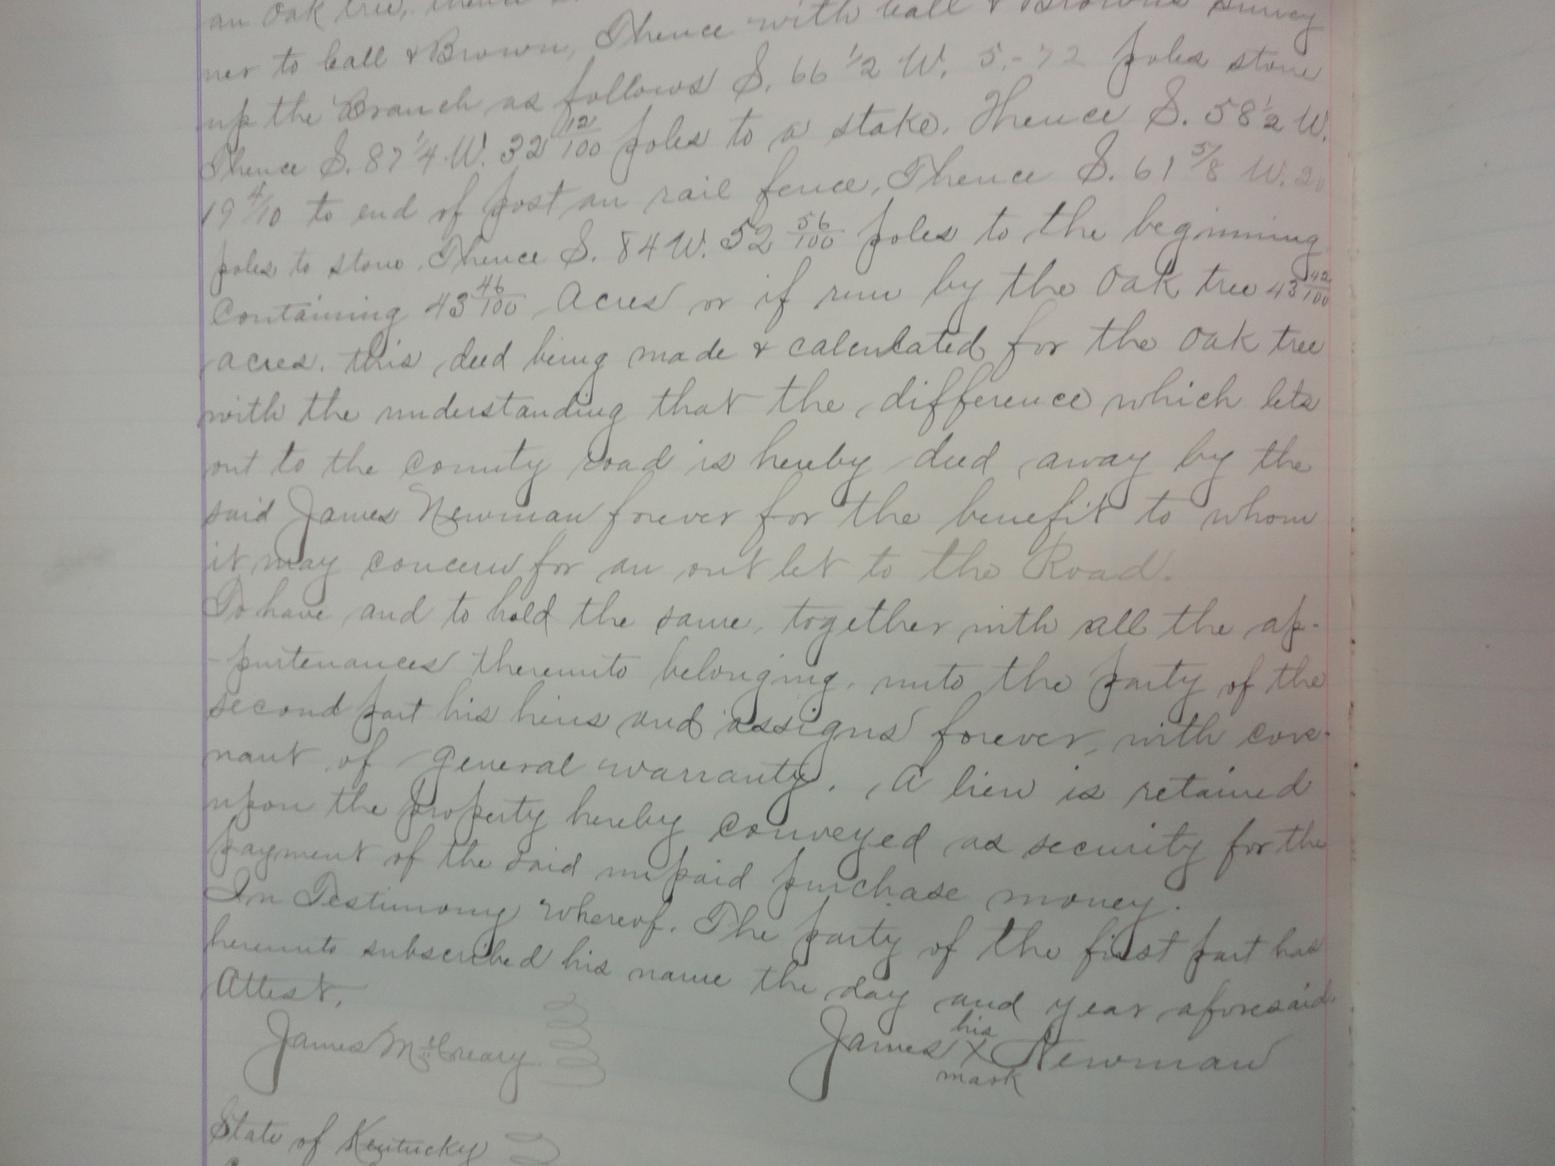 an Oak tree, thence
ner to Call & Brown, Thence with Call & Browns Survey
up the Branch as follows S. 66 1/2 W. 5.-72 poles stone
Thence S. 87 1/4 W. 32 12/100 poles to a stake. Thence S. 58 1/2 W.
19 4/10 to end of post an rail fence, Thence S. 61 5/8 W. 20
poles to stone. Thence S. 84 W. 52 56/100 poles to the beginning
Containing 43 46/100 Acres or if run by the Oak tree 43 42/100
acres. this deed being made & calculated for the Oak tree
with the understanding that the difference which lets
out to the county road is hereby deed away by the
said James Newman forever for the benefit to whom
it may concern for an out let to the Road.
To have and to hold the same, together with all the ap-
-purtenances thereunto belonging, unto the party of the
second part his heirs and assigns forever, with cove-
nant of General warranty. A lien is retained
upon the property hereby conveyed as security for the
payment of the said unpaid purchase money.
In Testimony Whereof. The party of the first part has
hereunto subscribed his name the day and year aforesaid.
Attest,
James McCreary
his
James X Newman
mark
State of Kentucky